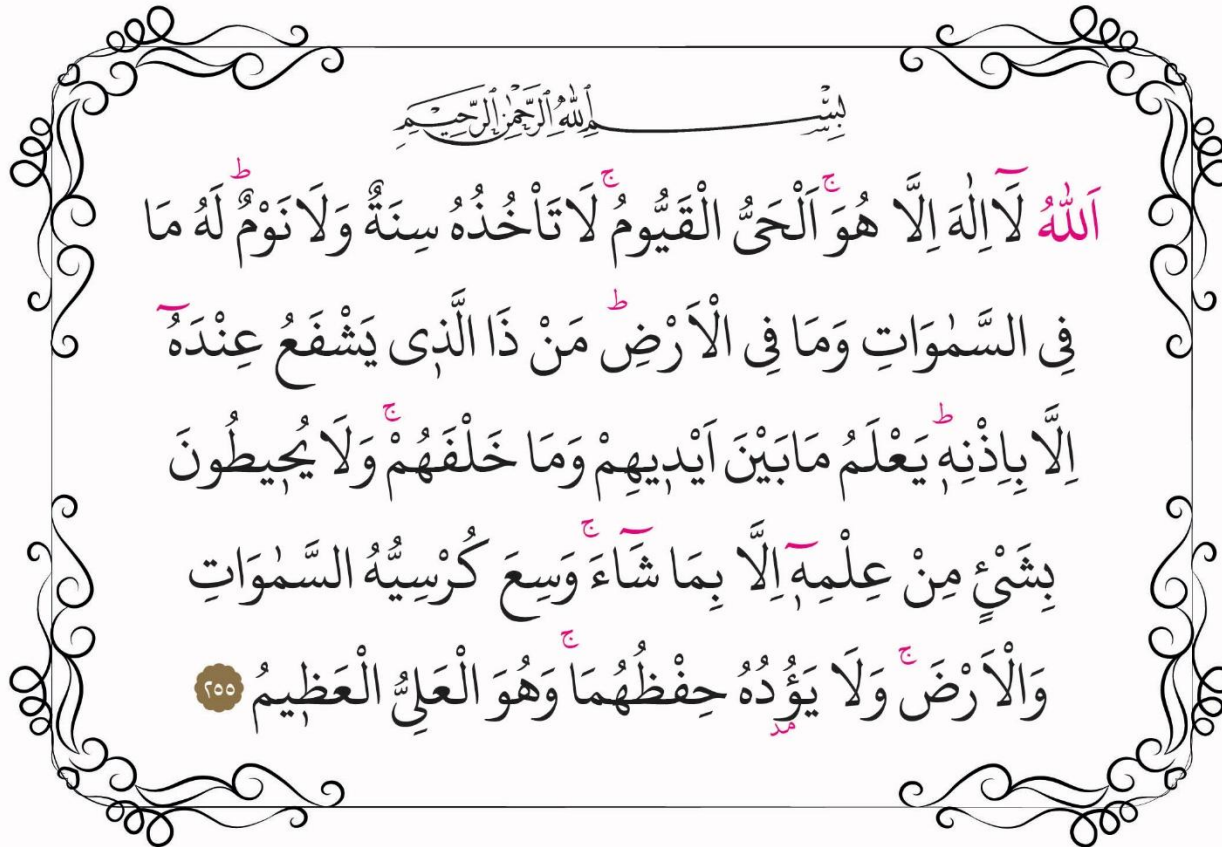 بِسْمِ اللّٰهِ الرَّحْمٰنِ الرَّحِيمِ
اَللّٰهُ لَٓا اِلٰهَ اِلَّا هُوَۚ اَلْحَىُّ الْقَيُّومُۚ لَا تَاْخُذُهُ سِنَةٌ وَلَا نَوْمٌؕ لَهُ مَا
فِى السَّمٰوَاتِ وَمَا فِى الْاَرْضِؕ مَنْ ذَا الَّذٖى يَشْفَعُ عِنْدَهُٓ
اِلَّا بِاِذْنِهٖؕ يَعْلَمُ مَا بَيْنَ اَيْدٖيهِمْ وَمَا خَلْفَهُمْۚ وَلَا يُحٖيطُونَ
بِشَىْءٍ مِنْ عِلْمِهٖٓ اِلَّا بِمَا شَٓاءَۚ وَسِعَ كُرْسِيُّهُ السَّمٰوَاتِ
وَالْاَرْضَۚ وَلَا يَؤُدُهُ حِفْظُهُمَاۚ وَهُوَ الْعَلِىُّ الْعَظٖيمُ ٢٥٥
مد